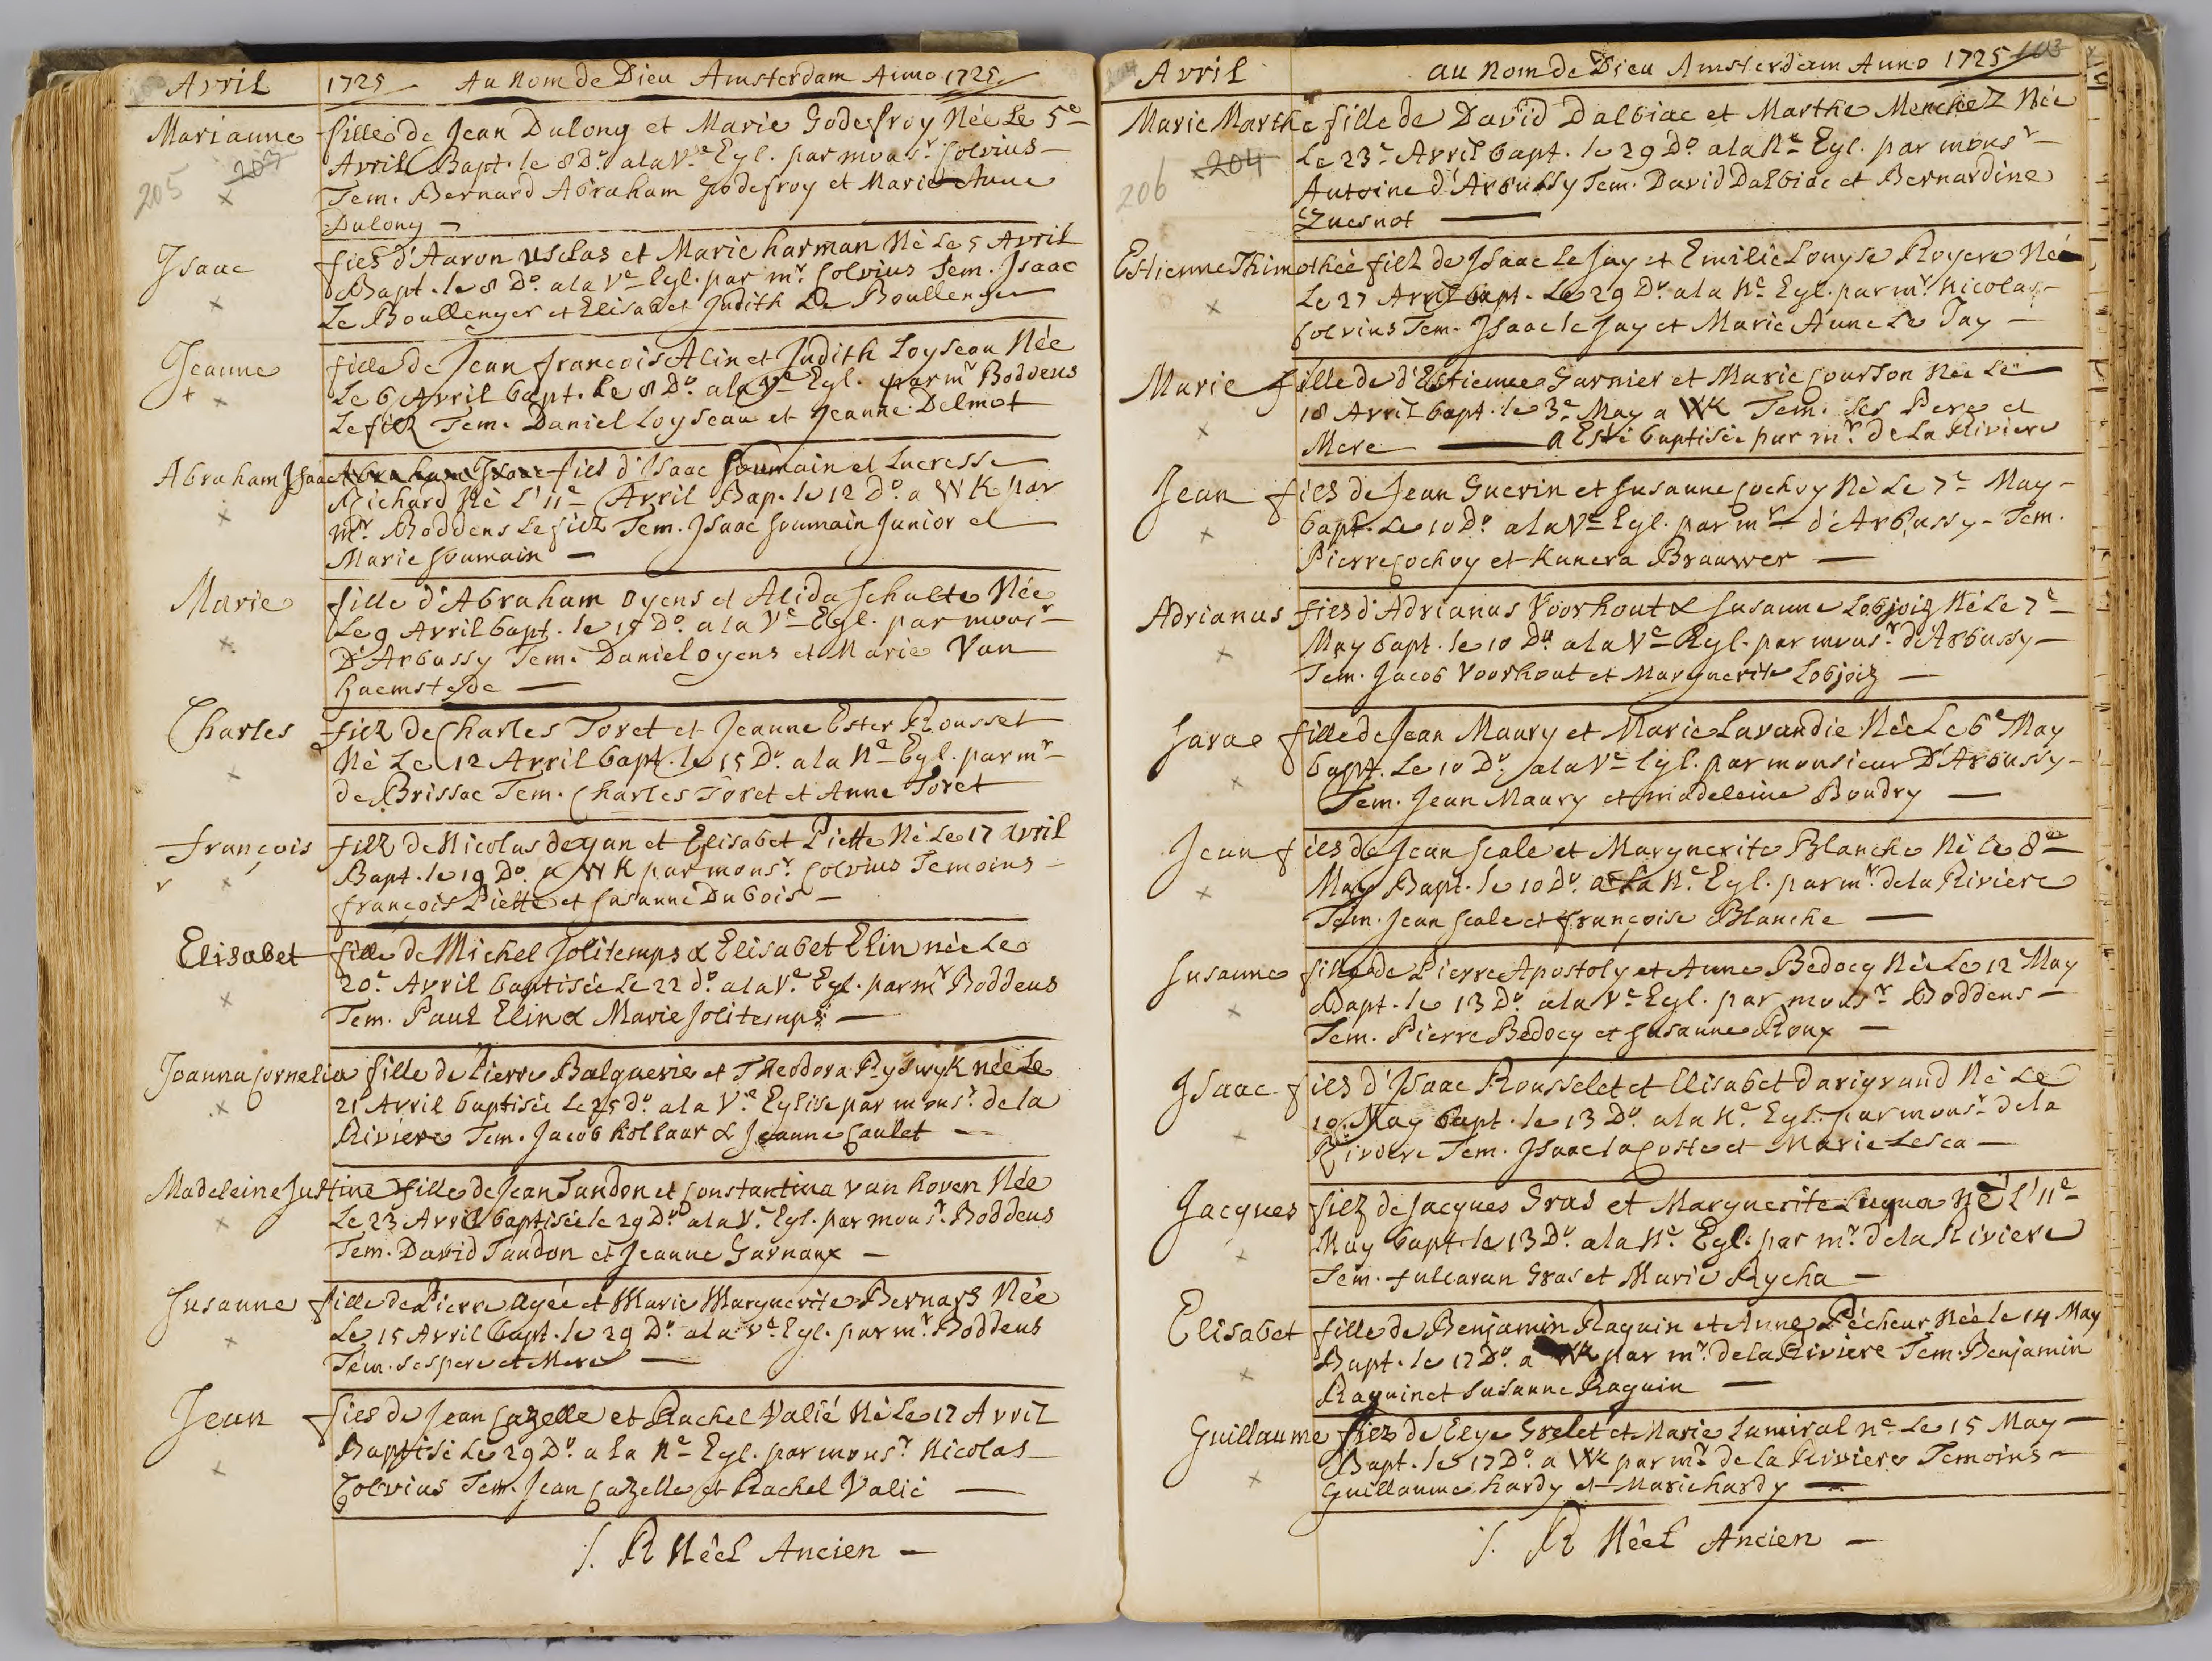 Avril 1725 Au Nom de Dieu Amsterdam Anno 1725
Marianne fille de Jean Dulong et Marie Godefroy Née Le 5e
Avril Bapt. le 8 Do. a la Ve Egl. par monsr Colvius
205 203 Tem. Bernard Abraham Godefroy et Marie Anne
Dulong
Isaac fils d'Aaron Usclas et Marie harman Né Le 5 Avril
Bapt. le 8 Do. a la Ve Egl. par mr Colvius Tem. Isaac
Le Boullenger et Elisabet Judith Le Boullenger
Jeanne fille de Jean francois Alin et Judith Loyseau Née
Le 6 Avril bapt. Le 8 Do. a la Ve Egl. par mr Boddens
Le filz Tem. Daniel Loyseau et Jeanne Delmot
Abraham Isaac Abraham Isaac fils d'Isaac Soumain et Lucresse
Richard Né L'11e Avril Bap. le 12 Do. a WK par
mr. Boddens Le filz Tem. Isaac Soumain Junior et
Marie Soumain
Marie fille d'Abraham Oyens et Alida Schulte Née
Le 9 Avril bapt. le 15 Do. a la Ve Egl. par monsr
D'Arbussy Tem. Daniel Oyens et Marie Van
haemstede
Charles filz de Charles Toret et Jeanne Ester Rousset
Né Le 12 Avril bapt. le 15 Do. a la Ne Egl. par mr
de Brissac Tem. Charles Toret et Anne Toret
françois filz de Nicolas deyan et Elisabet Piette Né Le 17 avril
Bapt. le 19 Do. a WK par monsr. Colvius Temoins
françois Piette et Susanne Dubois
Elisabet fille de Michel Jolitemps & Elisabet Elin née Le
20e Avril baptisée Le 22 do. a la Ve. Egl. par mr Boddens
Tem. Paul Elin & Marie Jolitemps
Joanna Cornelia fille de Pierre Balguerie et Theodora Ryswyk née Le
21 Avril baptisée Le 25 do. a la Ve. Eglise par monsr. de la
Riviere Tem. Jacob Kollaar & Jeanne Caulet
Madeleine Justine fille de Jean Tandon et Constantina van hoven Née
Le 23 Avril baptisée le 29 Do. a la Ve. Egl. par monsr. Boddens
Tem. David Tandon et Jeanne Garnaux
Susanne fille de Pierre Agée et Marie Marguerite Bernars Née
Le 15 Avril bapt. le 29 Do. a la Ve. Egl. par mr. Boddens
Tem. Ses pere et Mere
Jean fils de Jean Cazelle et Rachel Valié Né Le 17 Avril
Baptisé Le 29 Do. a la Ne Egl. par monsr. Nicolas
Colvius Tem. Jean Cazelle et Rachel Valié
S. R Néel Ancien
Avril au Nom de Dieu Amsterdam Anno 1725 103
Marie Marthe fille de David Dalbiac et Marthe Menchez Née
Le 23e Avril bapt. le 29 Do. a la Ne Egl. par monsr
206 204 Antoine d'Arbussy Tem. David Dalbiac et Bernardine
Quesnot
Estienne Thimothée filz de Isaac Le Jay et Emilie Louyse Royere Né
Le 27 Avril bapt. Le 29 Do. a la Ne Egl. par mr. Nicolas
Colvius Tem. Isaac le Jay et Marie Anne Le Jay
Marie fille de d'Estienne Garnier et Marie Courson Née Le
18 Avril bapt. le 3e May a WK Tem. Les Pere et
Mere a Esté baptisée par mr. de La Riviere
Jean fils de Jean Guerin et Susanne Cochoy Né Le 7e May
bapt. Le 10 Do. a la Ve Egl. par mr d'Arbussy Tem.
Pierre Cochoy et Kunera Brauwer
Adrianus fils d'Adrianus Voorhout & Susanne Lobjoiz Né Le 7e
May bapt. le 10 Do. a la Ve Egl. par monsr. d'Arbussy
Tem. Jacob Voorhout et Marguerite Lobjoiz
Sara fille de Jean Maury et Marie Lavandie Née Le 6e May
bapt. Le 10 Do. a la Ve Egl. par monsieur D'Arbussy
Tem. Jean Maury et madeleine Boudry
Jean fils de Jean Scale et Marguerite Blanche Né le 8e
May Bapt. le 10 Do. a La Ne. Egl. par mr. de la Riviere
Tem. Jean Scale et françoise Blanche
Susanne fille de Pierre Apostoly et Anne Bedocq Née Le 12 May
Bapt. le 13 Do. a la Ve. Egl. par monsr. Boddens
Tem. Pierre Bedocq et Susanne Roux
Isaac fils d'Isaac Rousselet et Elisabet darigrand Né Le
10. May bapt. le 13 Do. a la Ne. Egl. par monsr. de la
Riviere Tem. Isaac la Coste et Marie Lesca
Jacques filz de Jacques Gras et Marguerite Lieqna Né L'11e
May bapt. le 13 Do. a la Ne. Egl. par mr. de la Riviere
Tem. fulcaran Gras et Marie Rycha
Elisabet fille de Benjamin Raguin et Anne Pécheur Née le 14 May
Bapt. le 17 Do. a WK par mr. de la Riviere Tem. Benjamin
Raguin et Susanne Raguin
Guillaume filz de Elye Grelet et Marie Lamiral né Le 15 May
Bapt. le 17 Do. a WK par mr. de la Riviere Temoins
Guillaume hardy et Marie hardy
S. R Néel Ancien